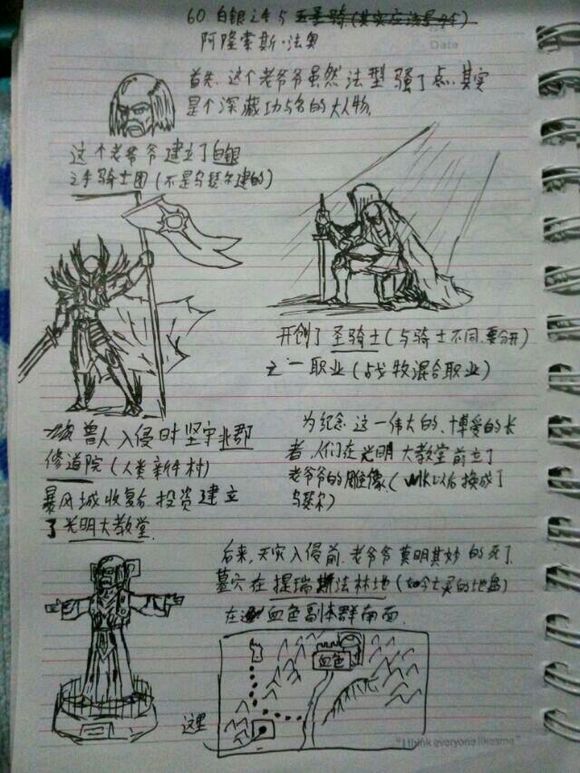 60. 白银之手与
阿隆索斯·法奥
Date
首先，这个老爷爷虽然法型骚了点，其实
是个深藏功与名的大人物。
这个老爷爷建立了白银
之手骑士团（不是乌瑟尔建的）
开创了圣骑士（与骑士不同，要分开）
之一职业（战牧混合职业）
兽人入侵时坚守北郡
修道院（人类新手村）
暴风城收复后投资建立
了光明大教堂.
为纪念这一伟大的、博爱的长
者，人们在光明大教堂前立了
老爷爷的雕像（WLK以后换成了
乌瑟尔）
后来，天灾入侵前，老爷爷莫明其妙的死了.
墓穴在提瑞斯法林地（如今亡灵的地盘）
在血色副本群南面.
血色
这里
"I think everyone likesme"